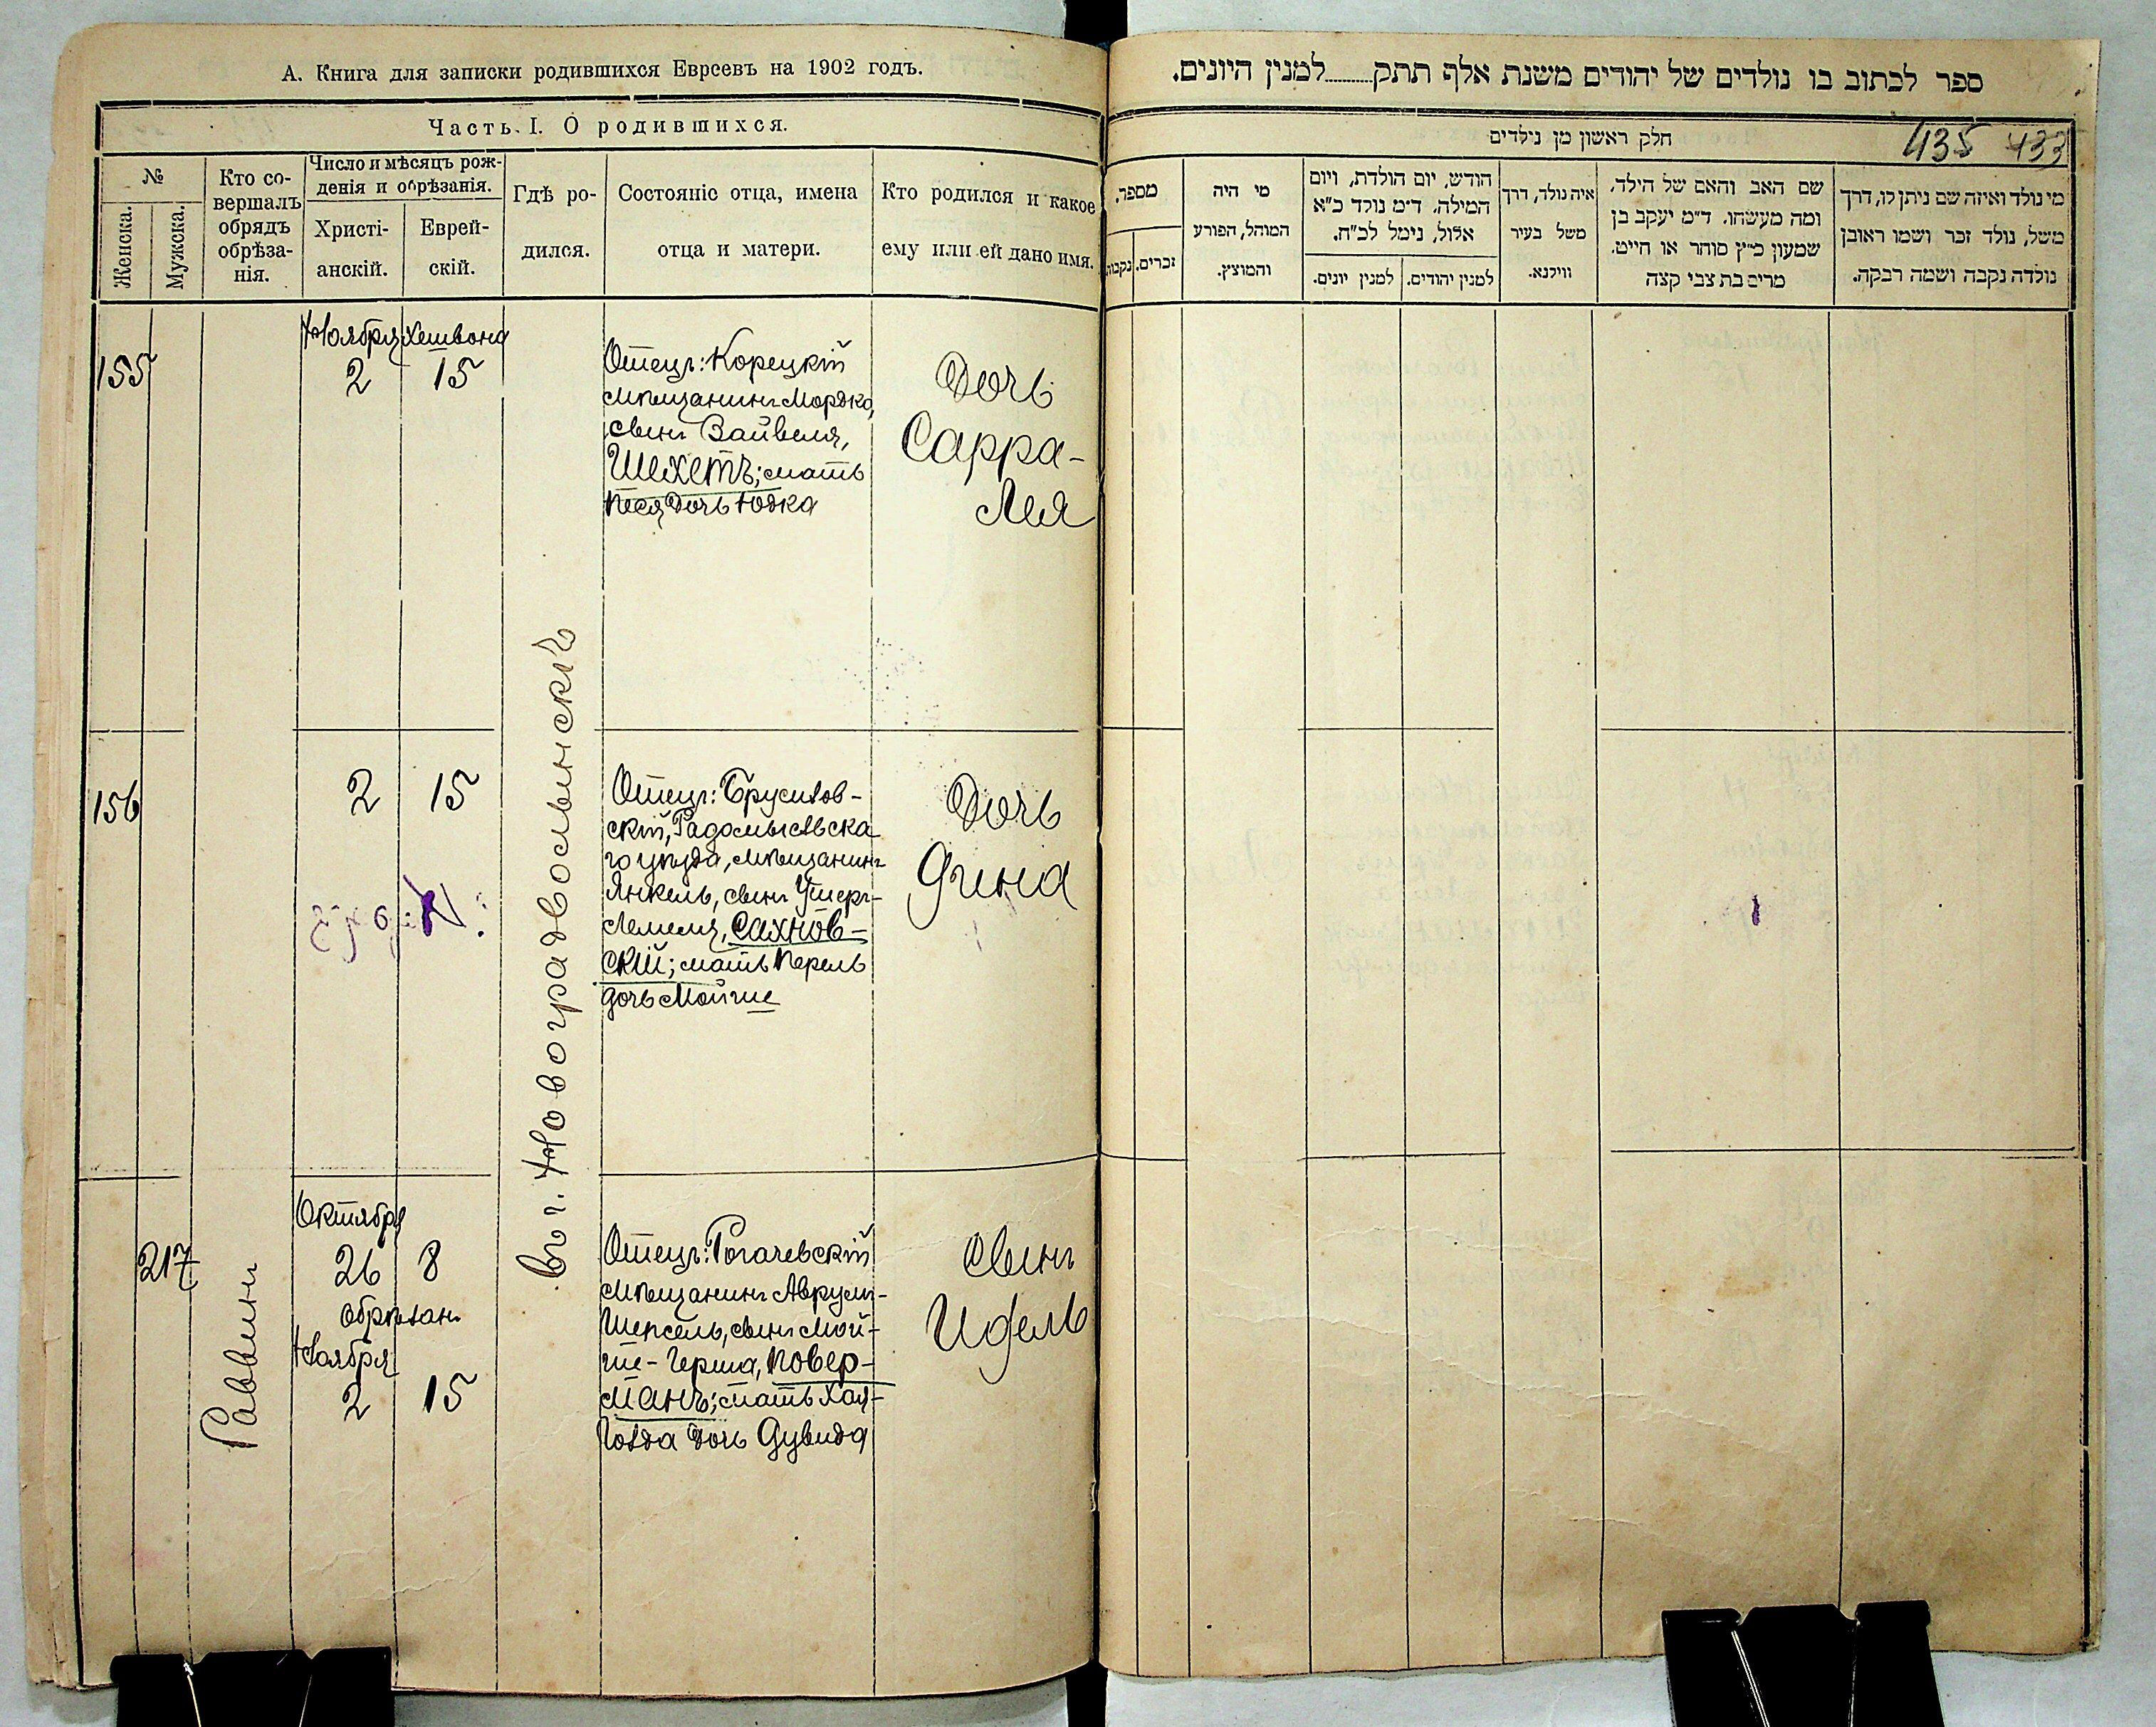 А. Книга для записки родившихся Евреевъ на 1902 годъ.
Часть. I. О родившихся.
№
Женска.
Мужска.
Кто со-
вершалъ
обрядъ
обрѣза-
нія.
Число и мѣсяцъ рож-
денія и обрѣзанія.
Христі-
анскій.
Еврей-
скій.
Гдѣ ро-
дился.
Состояніе отца, имена
отца и матери.
Кто родился и какое
ему или ей дано имя.
155
Ноября Хешвона
2 15
Отецъ: Корецкій
мѣщанинъ Мордко,
сынъ Вайвеля,
Шехетъ; мать
Песя дочь Юдка
Дочь
Сарра-
Лея
въ г. Новоградволынскѣ
156
2 15
Отецъ: Брусилов-
скій, Радомысльска
го уѣзда, мѣщанинъ
Янкель, сынъ Ушеръ-
Лемеля, Сахнов-
скій; мать Перель
дочь Мойше
Дочь
Дина
217
Раввинъ
Октября
26 8
обрѣзан.
Ноября
2 15
Отецъ: Рогачевскій
мѣщанинъ Аврум-
Шепсель, сынъ Мой-
ше-Герша, Повер-
манъ; мать Хая-
Голда дочь Дувида
Сынъ
Идель
ספר לכתוב בו נולדים של יהודים משנת אלף תתק למנין היונים.
חלק ראשון מן נילדים
435 433
מי נולד ואיזה שם ניתן לו, דרך
משל, נולד זכר ושמו ראובן
נולדה נקבה ושמה רבקה.
שם האב והאם של הילד,
ומה מעשהו. ד״מ יעקב בן
שמעון כ״ץ סוהר או חייט.
מרים בת צבי קצה
איה נולד, דרך
משל בעיר
ווילנא.
חודש, יום הולדת, ויום
המילה. ד״מ נולד כ״א
אלול, נימל לכ״ח.
למנין יהודים.
למנין יונים.
מי היה
המוהל, הפורע
והמוצץ.
מספר.
זכרים.
נקבות